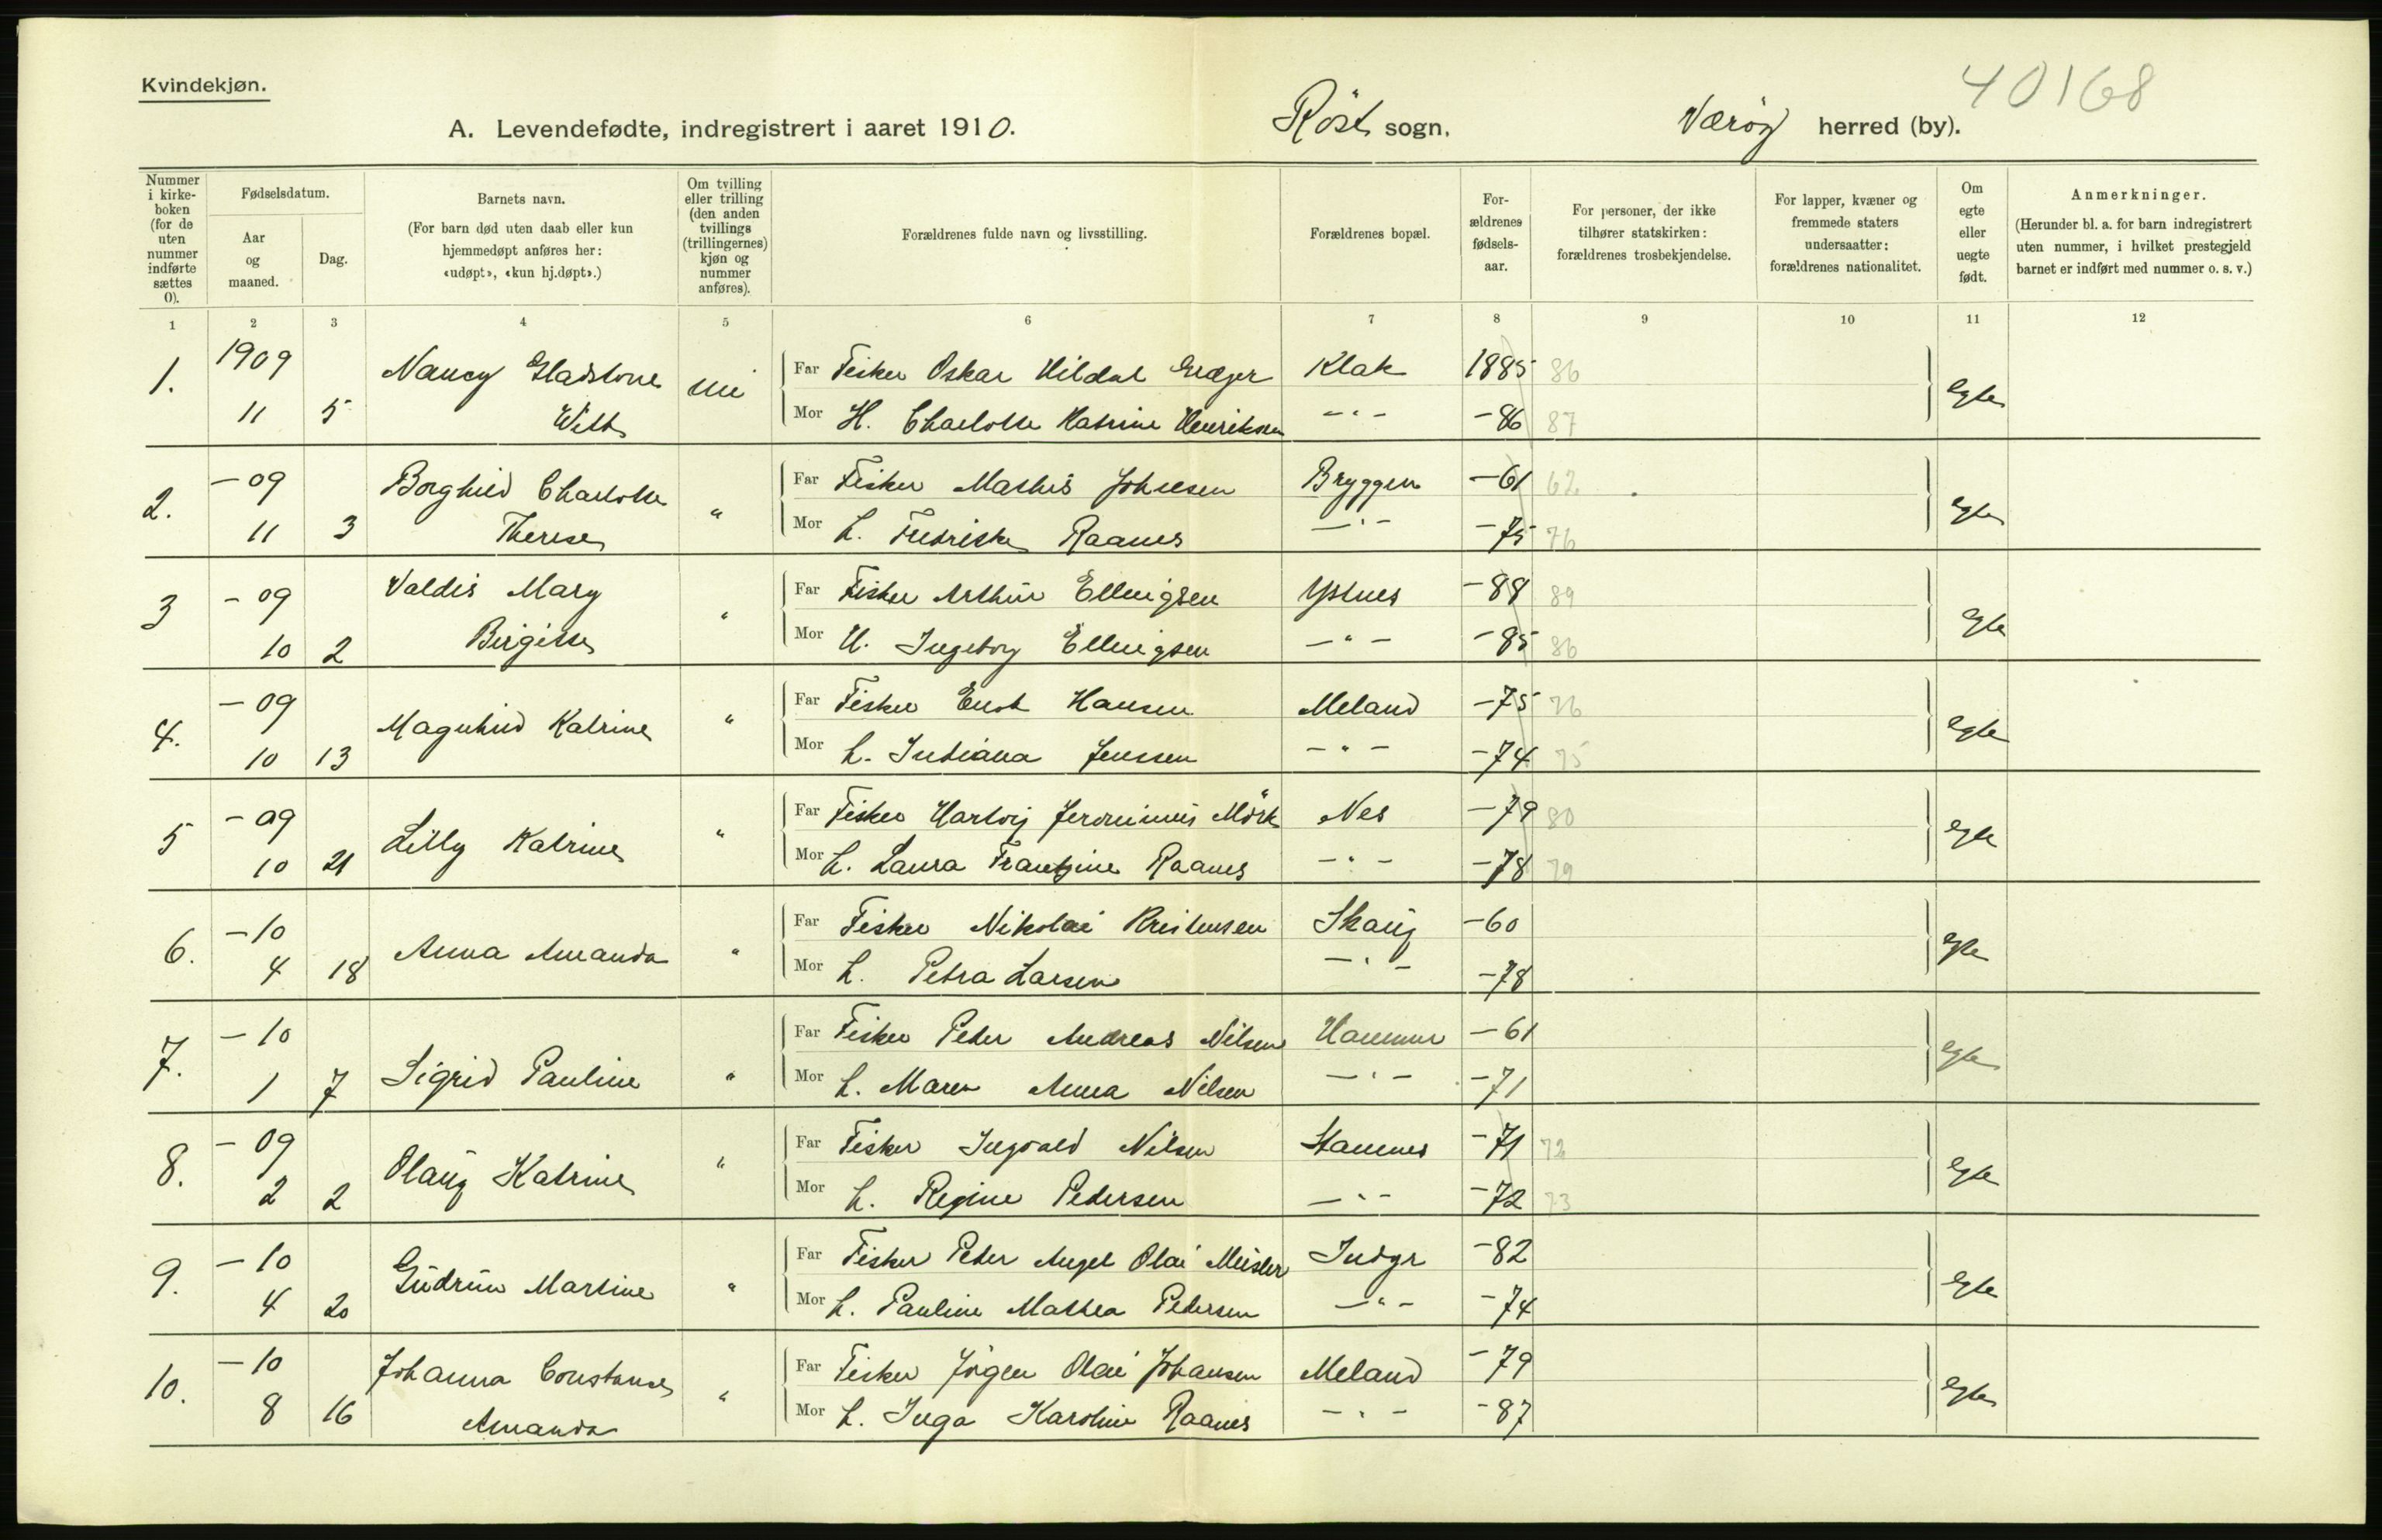 Kvindekjøn.
40168
A. Levendefødte, indregistrert i aaret 1910.
Röst sogn.
Væröy herred (by).
Nummer i kirkeboken (for de uten nummer indførte sættes 0).
Fødselsdatum.
Aar og maaned.
Dag.
Barnets navn.
(For barn død uten daab eller kun hjemmedøpt anføres her: «udøpt», «kun hj.døpt».)
Om tvilling eller trilling (den anden tvillings (trillingernes) kjøn og nummer anføres).
Forældrenes fulde navn og livsstilling.
Forældrenes bopæl.
Forældrenes fødselsaar.
For personer, der ikke tilhører statskirken: forældrenes trosbekjendelse.
For lapper, kvæner og fremmede staters undersaatter: forældrenes nationalitet.
Om egte eller uegte født.
Anmerkninger.
(Herunder bl. a. for barn indregistrert uten nummer, i hvilket prestegjeld barnet er indført med nummer o. s. v.)
1 2 3 4 5 6 7 8 9 10 11 12
1. 1909 Nancy Gladstone Far Fisker Oskar Hildal Klak 1885 86 Egte
11 5 Witt Mor H. Charlotte Katrine Henriksen -"- -86 87
2. -09 Borghild Charlotte " Far Fisker Mathis Johnsen Bryggen -61 62 Egte
11 3 Therese Mor H. Fredrikke Raanes -"- -75 76
3 -09 Valdis Mary " Far Fisker Arthur Ellingsen Ystnes -88 89 Egte
10 2 Birgitte Mor H. Ingeborg Ellingsen -"- -85 86
4. -09 Magnhild Katrine " Far Fisker Enok Hansen Meland -75 76 Egte
10 13 Mor H. Indiana Jenssen -"- -74 75
5 -09 Lilly Katrine " Far Fisker Hartvig Jeronimus Mörk Nes -79 80 Egte
10 21 Mor H. Laura Frantzine Raanes -"- -78 79
6. -10 Anna Amanda " Far Fisker Nikolai Kristensen Skaug -60 Egte
4 18 Mor H. Petra Larsen -"- -78
7. -10 Sigrid Pauline " Far Fisker Peder Andreas Nilsen Hammer -61 Egte
1 7 Mor H. Maren Anna Nilsen -"- -71
8. -09 Olaug Katrine " Far Fisker Ingvald Nilsen Stamnes -71 72 Egte
2 2 Mor H. Regine Pedersen -"- -72 73
9. -10 Gudrun Martine " Far Fisker Peder Angel Olai Meisler Indyr -82 Egte
4 20 Mor H. Pauline Mathea Pedersen -"- -74
10. -10 Johanna Constanse " Far Fisker Jörgen Olai Johansen Meland -79 Egte
8 16 Amanda Mor H. Inga Karoline Raanes -"- -87